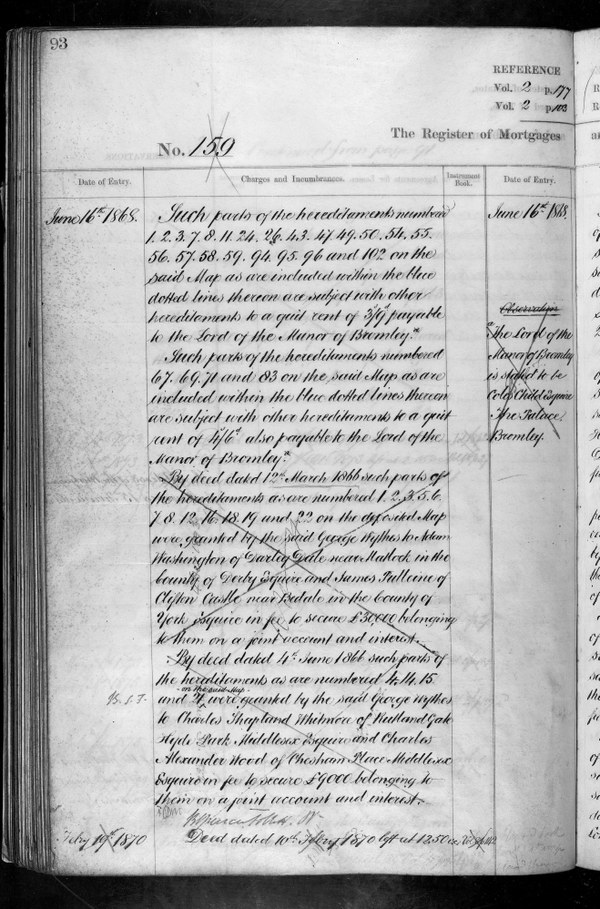 93
REFERENCE
Vol. 2 p. 177
Vol. 2 p. 103
The Register of Mortgages
No. 159
Date of Entry.
Charges and Incumbrances.
Instrument Book.
Date of Entry.
June 16th 1868.
Such parts of the hereditaments numbered
1. 2. 3. 7. 8. 11. 24. 26. 43. 47. 49. 50. 54. 55.
56. 57. 58. 59. 94. 95. 96 and 102 on the
said Map as are included within the blue
dotted lines thereon are subject with other
hereditaments to a quit rent of 3/9d payable
to the Lord of the Manor of Bromley.*
Such parts of the hereditaments numbered
67. 69. 71 and 83 on the said Map as are
included within the blue dotted lines thereon
are subject with other hereditaments to a quit
rent of 4/6d also payable to the Lord of the
Manor of Bromley.*
By deed dated 12th March 1866 such parts of
the hereditaments as are numbered 1. 2. 3. 5. 6.
7. 8. 12. 16. 18. 19 and 22 on the deposited Map
were granted by the said George Wythes to Adam
Washington of Darley Dale near Matlock in the
County of Derby Esquire and James Pulleine of
Clifton Castle near Bedale in the County of
York Esquire in fee to secure £30,000 belonging
to them on a joint account and interest.
By deed dated 4th June 1866 such parts of
the hereditaments as are numbered 4. 14. 15
on the said Map
and were granted by the said George Wythes
to Charles Shapland Whitmore of Rutland Gate
Hyde Park Middlesex Esquire and Charles
Alexander Wood of Chesham Place Middlesex
Esquire in fee to secure £9000 belonging to
them on a joint account and interest.
Feby 1870
Deed dated 10th Feby 1870 left at 12.50
June 16th 1868.
Observation
*The Lord of the
Manor of Bromley
is stated to be
Coles Child Esquire
The Palace
Bromley.